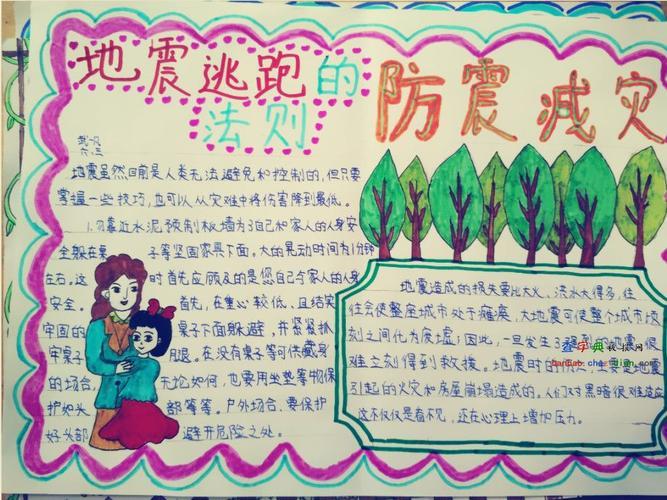 地震逃跑的
法则
防震减灾
地震虽然目前是人类无法避免和控制的,但只要
掌握一些技巧,也可以从灾难中将伤害降到最低。
1.勿靠近水泥预制板墙为了自己和家人的人身安
全躲在桌子等坚固家具下面。大的晃动时间为1分钟
左右,这时首先应顾及的是您自己与家人的人身
安全。首先,在重心较低、且结实
牢固的桌子下面躲避,并紧紧抓
牢桌子腿。在没有桌子等可供藏身
的场合,无论如何,也要用坐垫等物保
护如头部等等。户外场合,要保护
好头部避开危险之处。
地震造成的损失要比大火、洪水大得多,往
往会使整座城市处于瘫痪,大地震可使整个城市顷
刻之间化为废墟;因此,一旦发生了强烈的地震很
难立刻得到救援。地震时的是地震
引起的火灾和房屋崩塌造成的。人们对黑暗很难适应
这不仅仅是看不见,还在心理上增加压力。